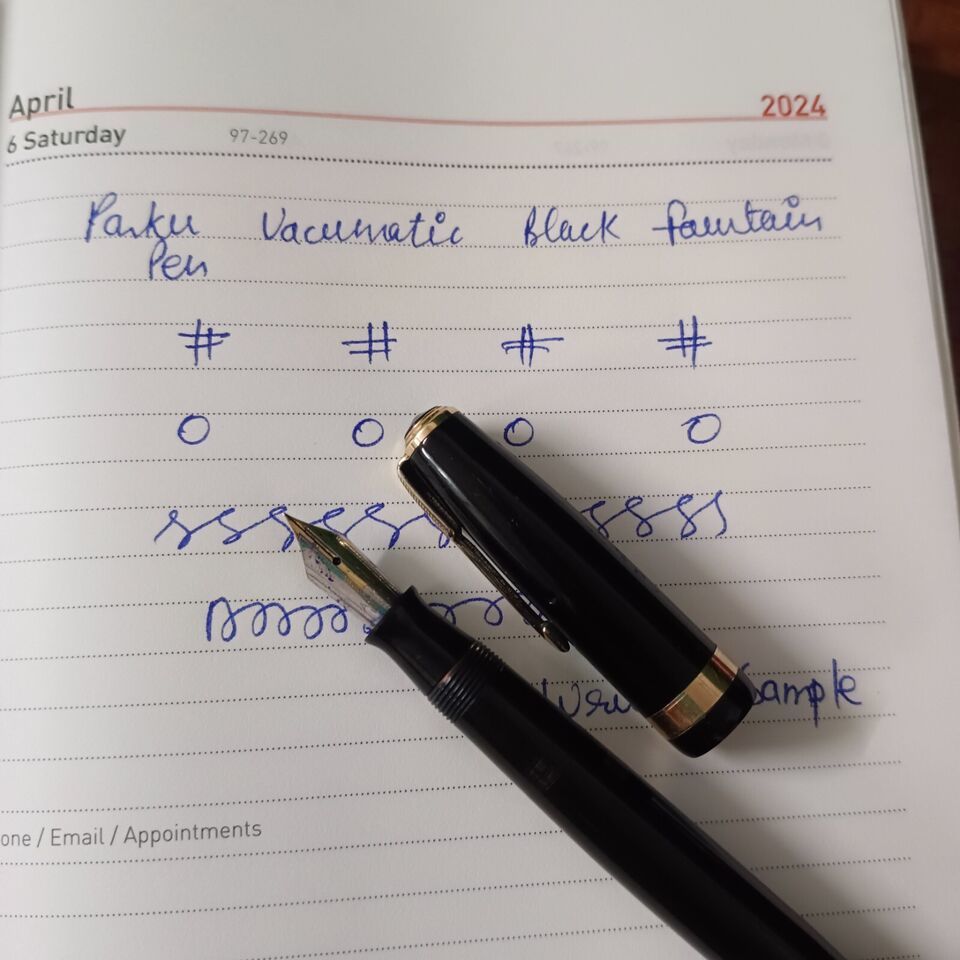 April 2024
6 Saturday 97-269
Parker Vacumatic Black fountain
Pen
# # # #
o o o o
Sample
one / Email / Appointments